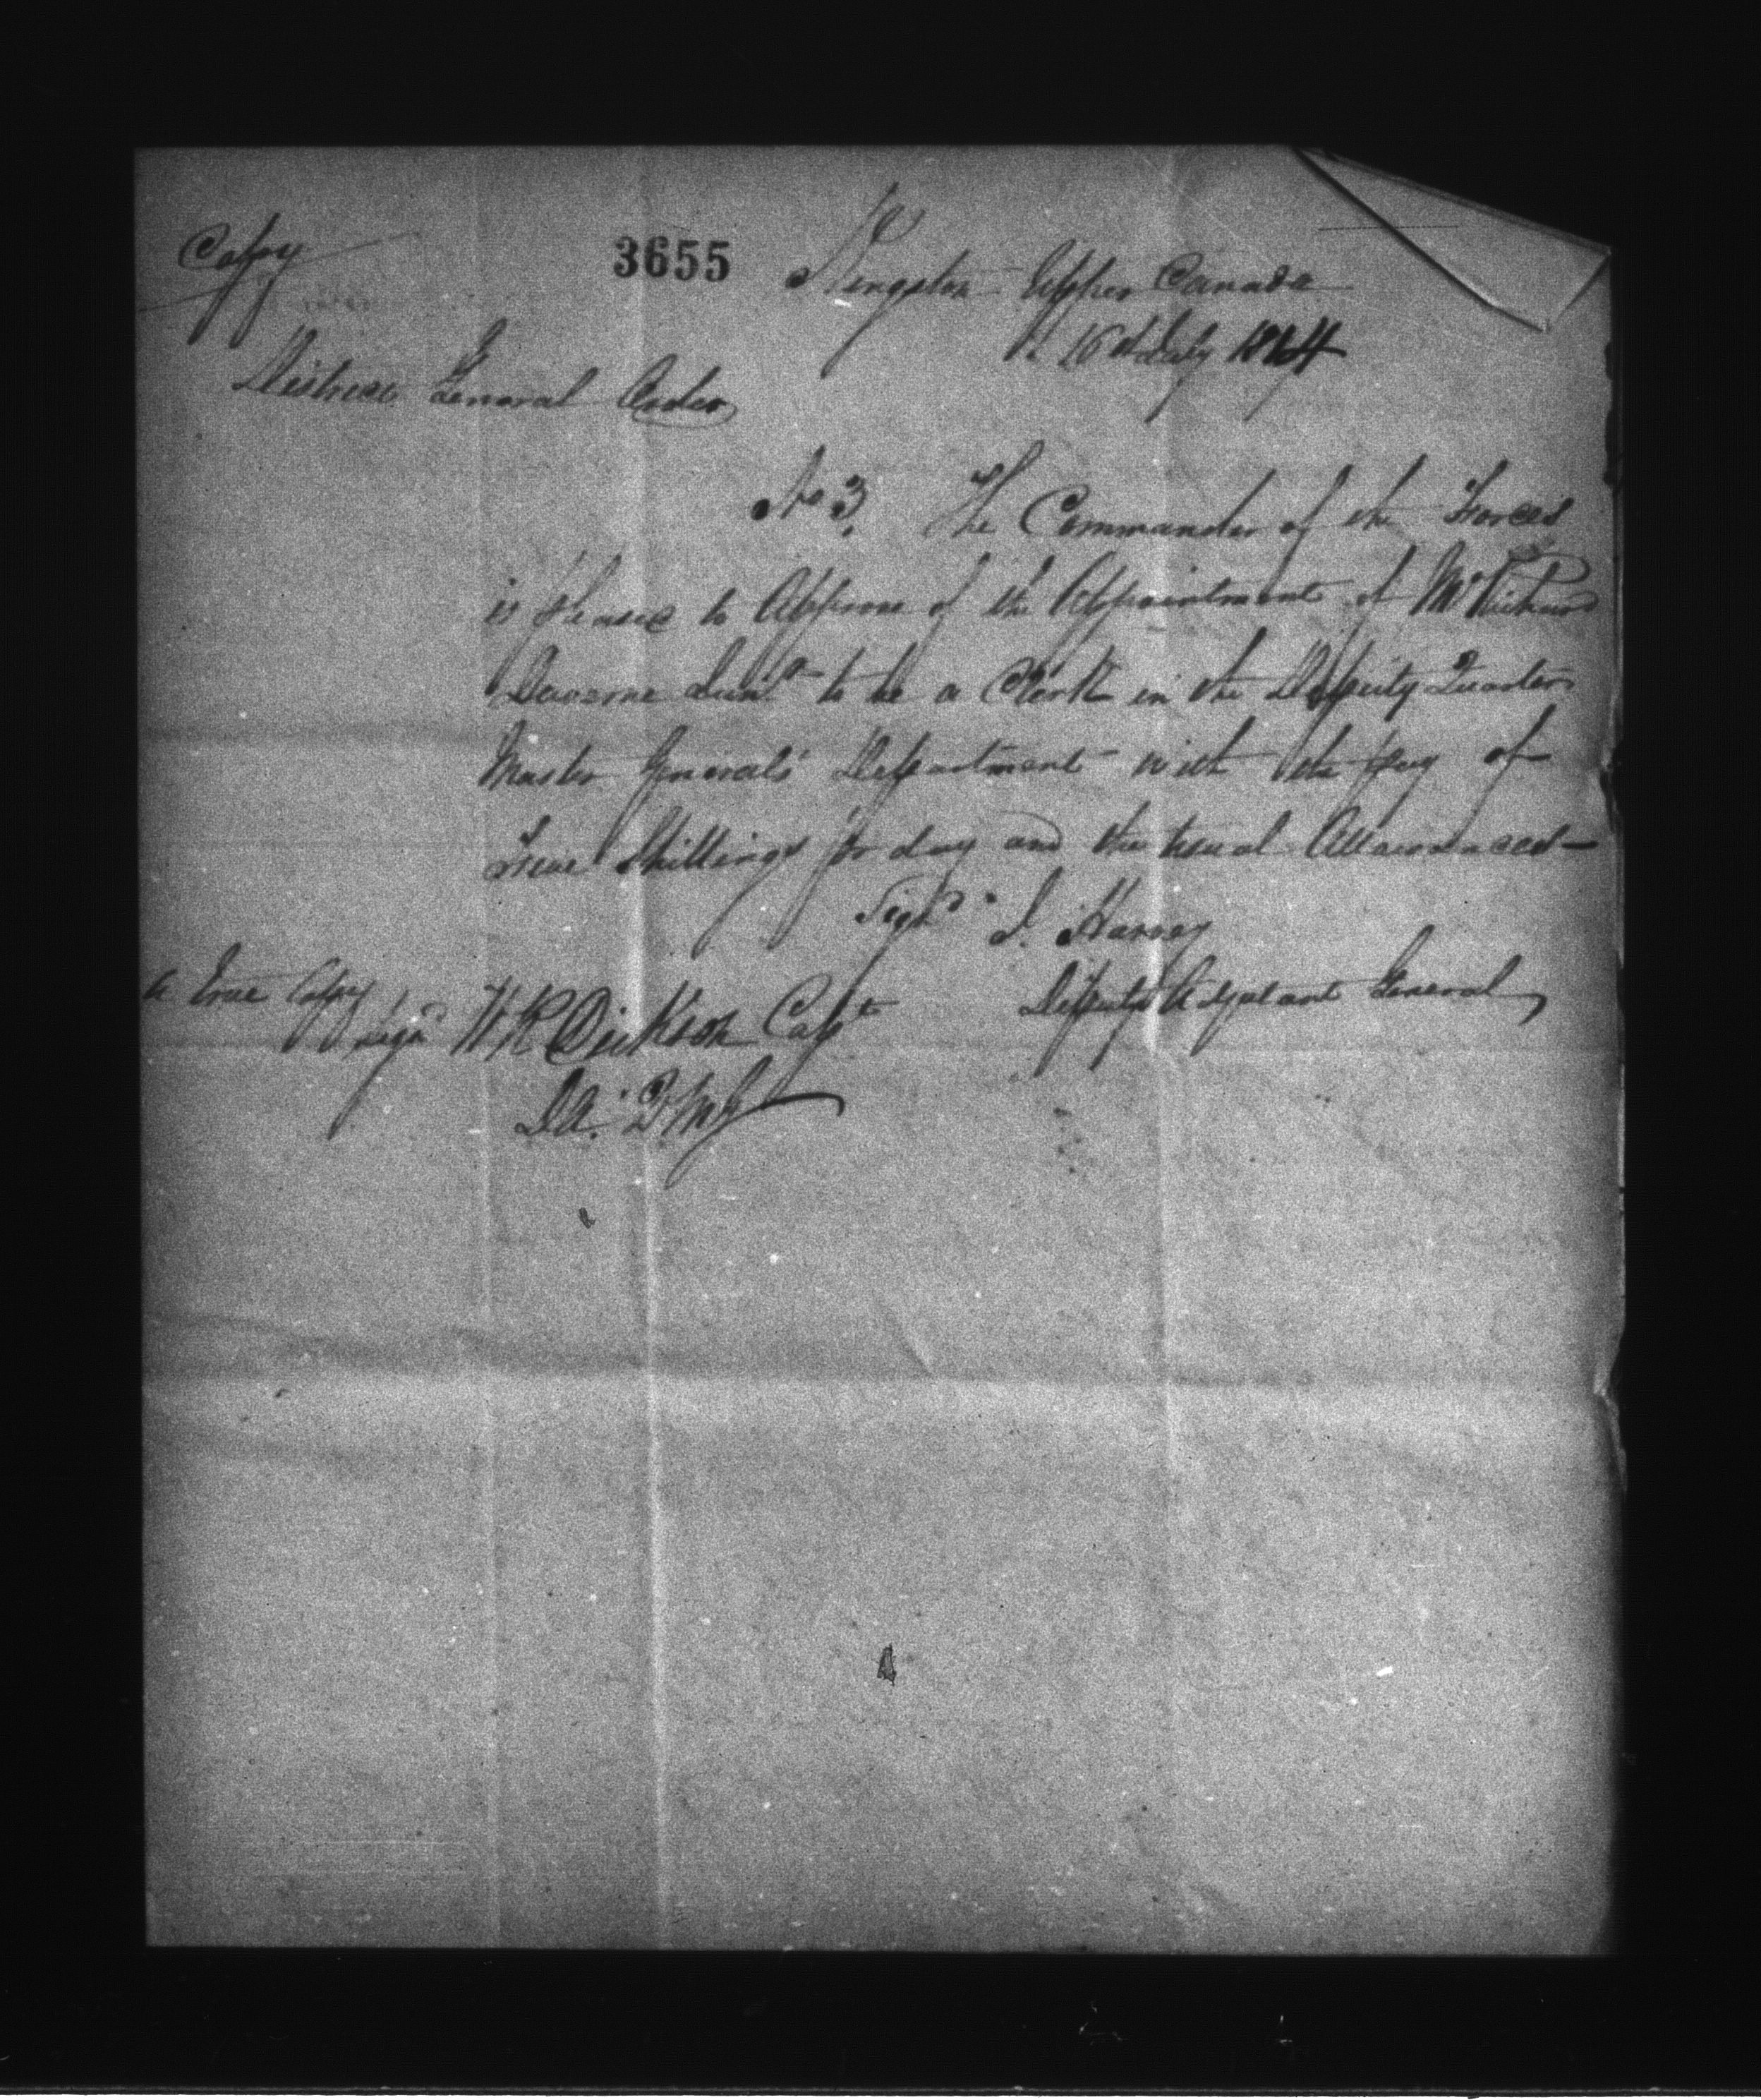 Copy
3655
Kingston Upper Canada
16th July 1814
District General Order
No 3. The Commander of the Forces
is pleased to Approve of the Appointment of Mr Richard
Davorne Junr to be a Clerk in the Deputy Quarter
Master Generals Department with the pay of
Five Shillings pr day and the usual Allowances—
Signd J. Harvey
Deputy Adjutant General
A True Copy
Signd W R Dickson Capt
DA. QMG